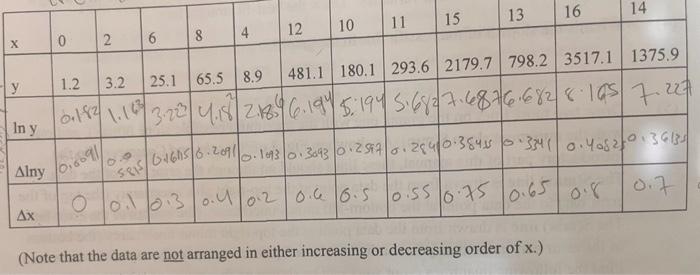 x 0 2 6 8 4 12 10 11 15 13 16 14
y 1.2 3.2 25.1 65.5 8.9 481.1 180.1 293.6 2179.7 798.2 3517.1 1375.9
ln y 0.182 1.163 3.223 4.182 2.186 6.194 5.194 5.682 7.687 6.682 8.165 7.227
Δlny 0.0091 0.1093 0.3093 0.3341
Δx 0 0.1 0.3 0.4 0.2 0.6 0.5 0.55 0.75 0.65 0.8 0.7
(Note that the data are not arranged in either increasing or decreasing order of x.)